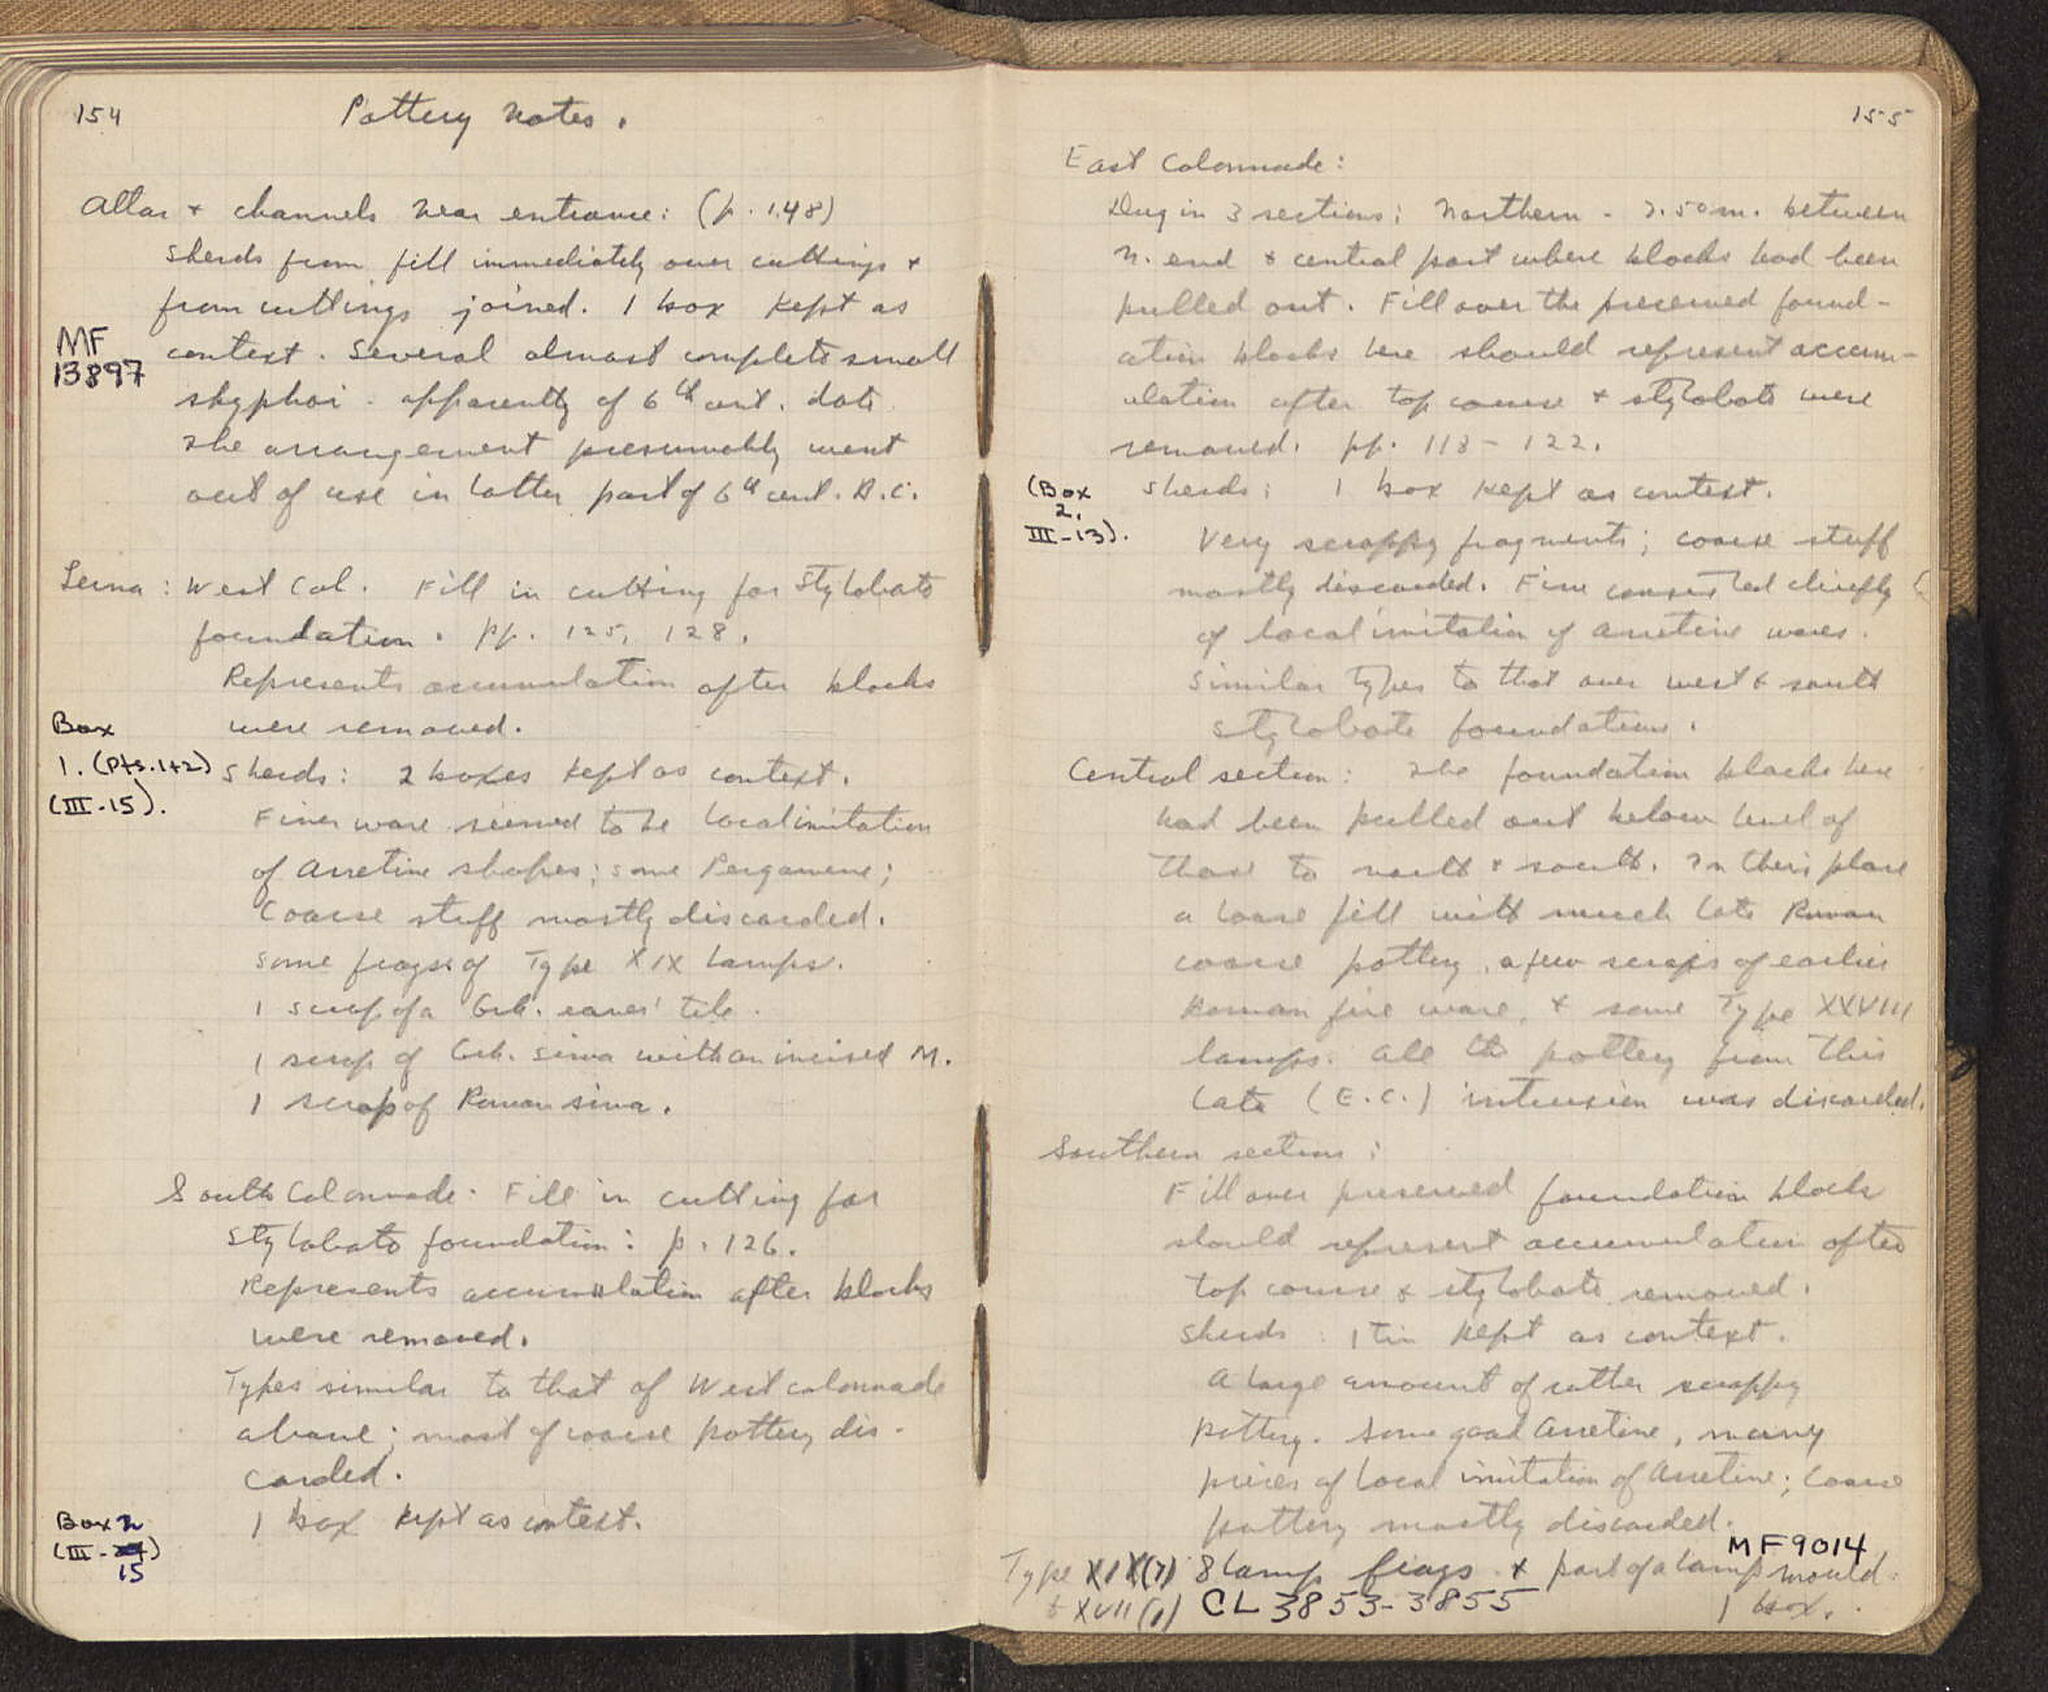 154
Pottery Notes.
Altar + channels near entrance: (p. 148)
Sherds from fill immediately over cuttings +
from cuttings joined. 1 box kept as
MF
13897
context. Several almost complete small
skyphoi - apparently of 6th cent. date.
The arrangement presumably went
out of use in latter part of 6th cent. B.C.
Lerna: West Col. Fill in cutting for stylobate
foundation. pp. 125, 128.
Represents accumulation after blocks
were removed.
Box
1. (Pts. 1+2)
(III-15).
Sherds: 2 boxes kept as context.
Finer ware seemed to be local imitation
of Arretine shapes; some Pergamene;
Coarse stuff mostly discarded.
Some frags of Type XIX lamps.
1 scrap of a Grk. eaves' tile.
1 scrap of Grk. sima with an incised M.
1 scrap of Roman sima.
South Colonnade: Fill in cutting for
stylobate foundation: p. 126.
Represents accumulation after blocks
were removed.
Types similar to that of West colonnade
above; most of coarse pottery dis-
carded.
1 box kept as context.
Box 2
(III-)
15
155
East Colonnade:
Dug in 3 sections: Northern - 7.50 m. between
N. end & central part where blocks had been
pulled out. Fill over the preserved found-
ation blocks here should represent accum-
ulation after top course + stylobate were
removed. pp. 118-122.
(Box
2.
III-13).
Sherds: 1 box kept as context.
Very scrappy fragments; coarse stuff
mostly discarded. Fine consisted chiefly
of local imitation of Arretine wares.
Similar types to that over west & south
stylobate foundations.
Central section: The foundation blocks here
had been pulled out below level of
those to north & south. In their place
a loose fill with much late Roman
coarse pottery, a few scraps of earlier
Roman fine ware, + some Type XXVIII
lamps. All the pottery from this
late (E.C.) intrusion was discarded.
Southern section:
Fill over preserved foundation blocks
should represent accumulation after
top course & stylobate removed.
Sherds: 1 tin kept as context.
A large amount of rather scrappy
pottery. Some good Arretine, many
pieces of local imitation of Arretine; Coarse
pottery mostly discarded.
MF 9014
Type XIX(7) 8 lamp frags + part of a lamp mould.
& XVII(1) CL 3853-3855 1 box.